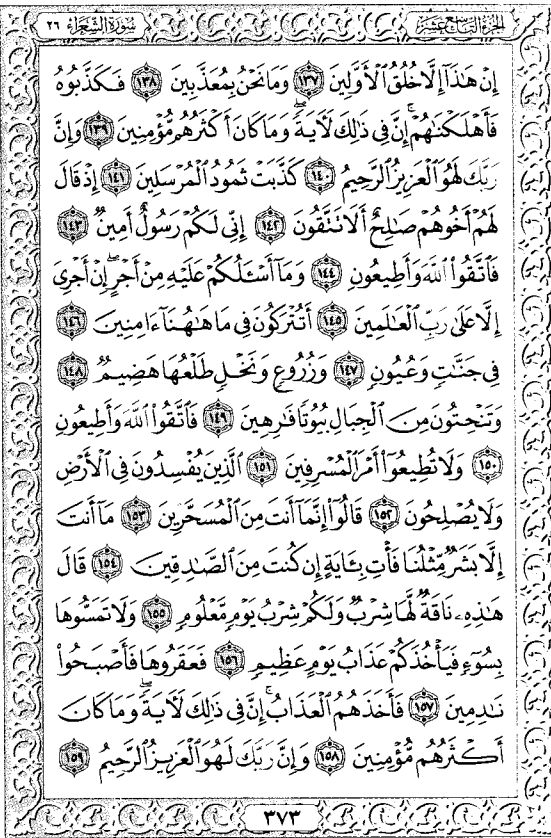 الجزء التاسع عشر
سورة الشعراء ٢٦
إِنْ هَٰذَآ إِلَّا خُلُقُ ٱلْأَوَّلِينَ ١٣٧ وَمَا نَحْنُ بِمُعَذَّبِينَ ١٣٨ فَكَذَّبُوهُ
فَأَهْلَكْنَٰهُمْ ۗ إِنَّ فِى ذَٰلِكَ لَءَايَةً ۖ وَمَا كَانَ أَكْثَرُهُم مُّؤْمِنِينَ ١٣٩ وَإِنَّ
رَبَّكَ لَهُوَ ٱلْعَزِيزُ ٱلرَّحِيمُ ١٤٠ كَذَّبَتْ ثَمُودُ ٱلْمُرْسَلِينَ ١٤١ إِذْ قَالَ
لَهُمْ أَخُوهُمْ صَٰلِحٌ أَلَا تَتَّقُونَ ١٤٢ إِنِّى لَكُمْ رَسُولٌ أَمِينٌ ١٤٣
فَٱتَّقُوا۟ ٱللَّهَ وَأَطِيعُونِ ١٤٤ وَمَآ أَسْـَٔلُكُمْ عَلَيْهِ مِنْ أَجْرٍ ۖ إِنْ أَجْرِىَ
إِلَّا عَلَىٰ رَبِّ ٱلْعَٰلَمِينَ ١٤٥ أَتُتْرَكُونَ فِى مَا هَٰهُنَآ ءَامِنِينَ ١٤٦
فِى جَنَّٰتٍ وَعُيُونٍ ١٤٧ وَزُرُوعٍ وَنَخْلٍ طَلْعُهَا هَضِيمٌ ١٤٨
وَتَنْحِتُونَ مِنَ ٱلْجِبَالِ بُيُوتًا فَٰرِهِينَ ١٤٩ فَٱتَّقُوا۟ ٱللَّهَ وَأَطِيعُونِ
١٥٠ وَلَا تُطِيعُوٓا۟ أَمْرَ ٱلْمُسْرِفِينَ ١٥١ ٱلَّذِينَ يُفْسِدُونَ فِى ٱلْأَرْضِ
وَلَا يُصْلِحُونَ ١٥٢ قَالُوٓا۟ إِنَّمَآ أَنتَ مِنَ ٱلْمُسَحَّرِينَ ١٥٣ مَآ أَنتَ
إِلَّا بَشَرٌ مِّثْلُنَا فَأْتِ بِـَٔايَةٍ إِن كُنتَ مِنَ ٱلصَّٰدِقِينَ ١٥٤ قَالَ
هَٰذِهِۦ نَاقَةٌ لَّهَا شِرْبٌ وَلَكُمْ شِرْبُ يَوْمٍ مَّعْلُومٍ ١٥٥ وَلَا تَمَسُّوهَا
بِسُوٓءٍ فَيَأْخُذَكُمْ عَذَابُ يَوْمٍ عَظِيمٍ ١٥٦ فَعَقَرُوهَا فَأَصْبَحُوا۟
نَٰدِمِينَ ١٥٧ فَأَخَذَهُمُ ٱلْعَذَابُ ۗ إِنَّ فِى ذَٰلِكَ لَءَايَةً ۖ وَمَا كَانَ
أَكْثَرُهُم مُّؤْمِنِينَ ١٥٨ وَإِنَّ رَبَّكَ لَهُوَ ٱلْعَزِيزُ ٱلرَّحِيمُ ١٥٩
٣٧٣